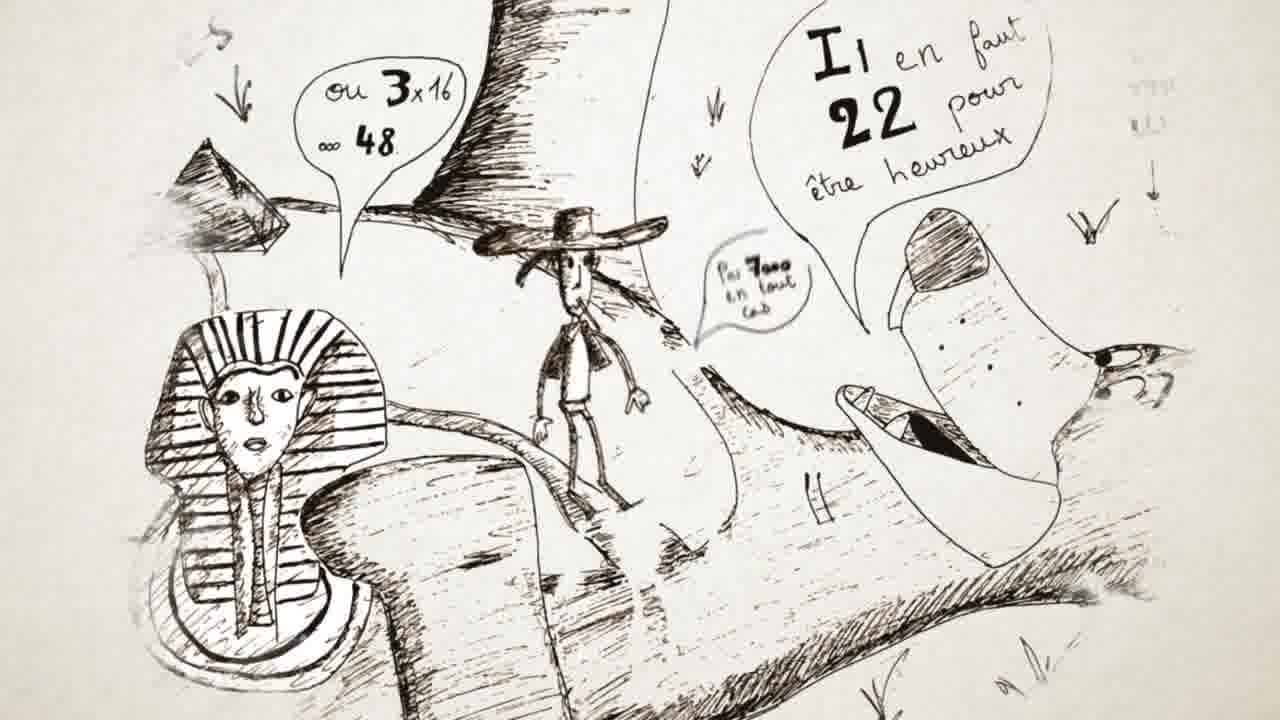 ou 3x16
... 48.
Il en faut
22 pour
être heureux
Pas 7000
en tout
cas